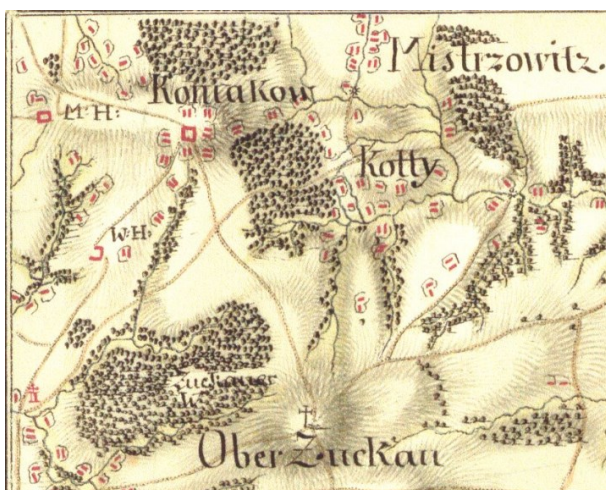 Mistrzowitz.
Koniakow
M:H:
Kotty
W:H:
Zuckauer
W.
Ober Zuckau